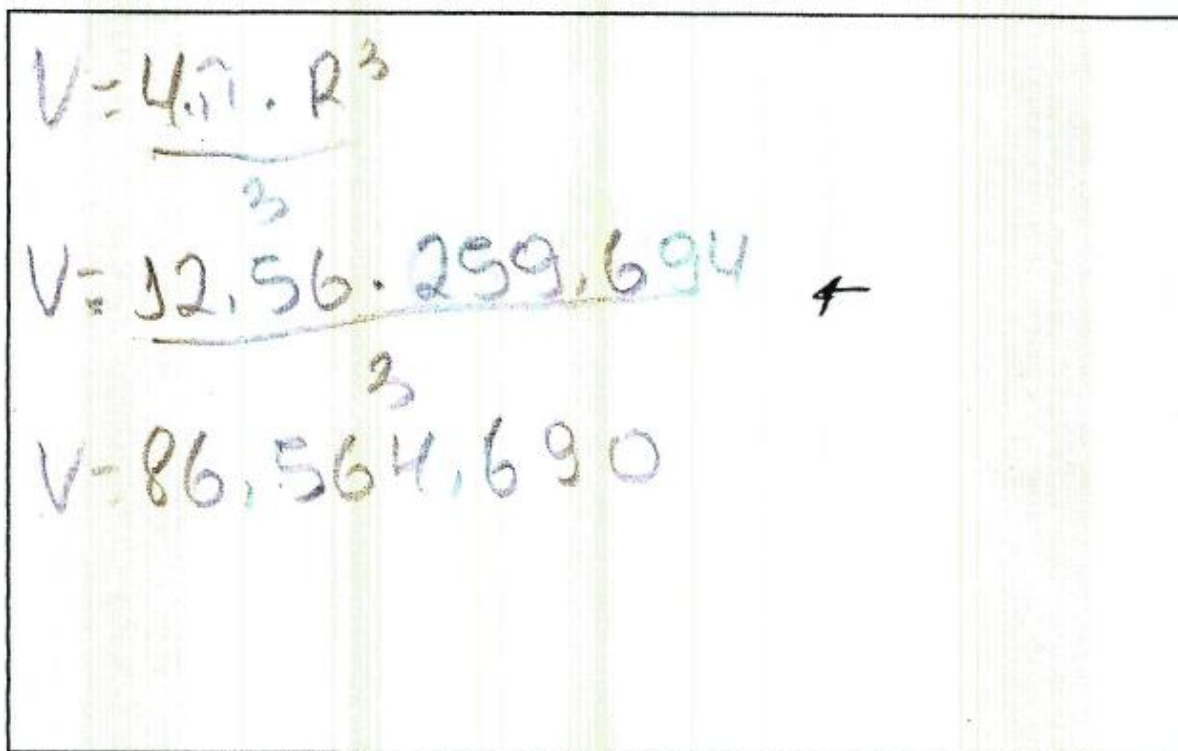 V=4.π.R³
3
V=12,56.259,694
3
V=86,564,690